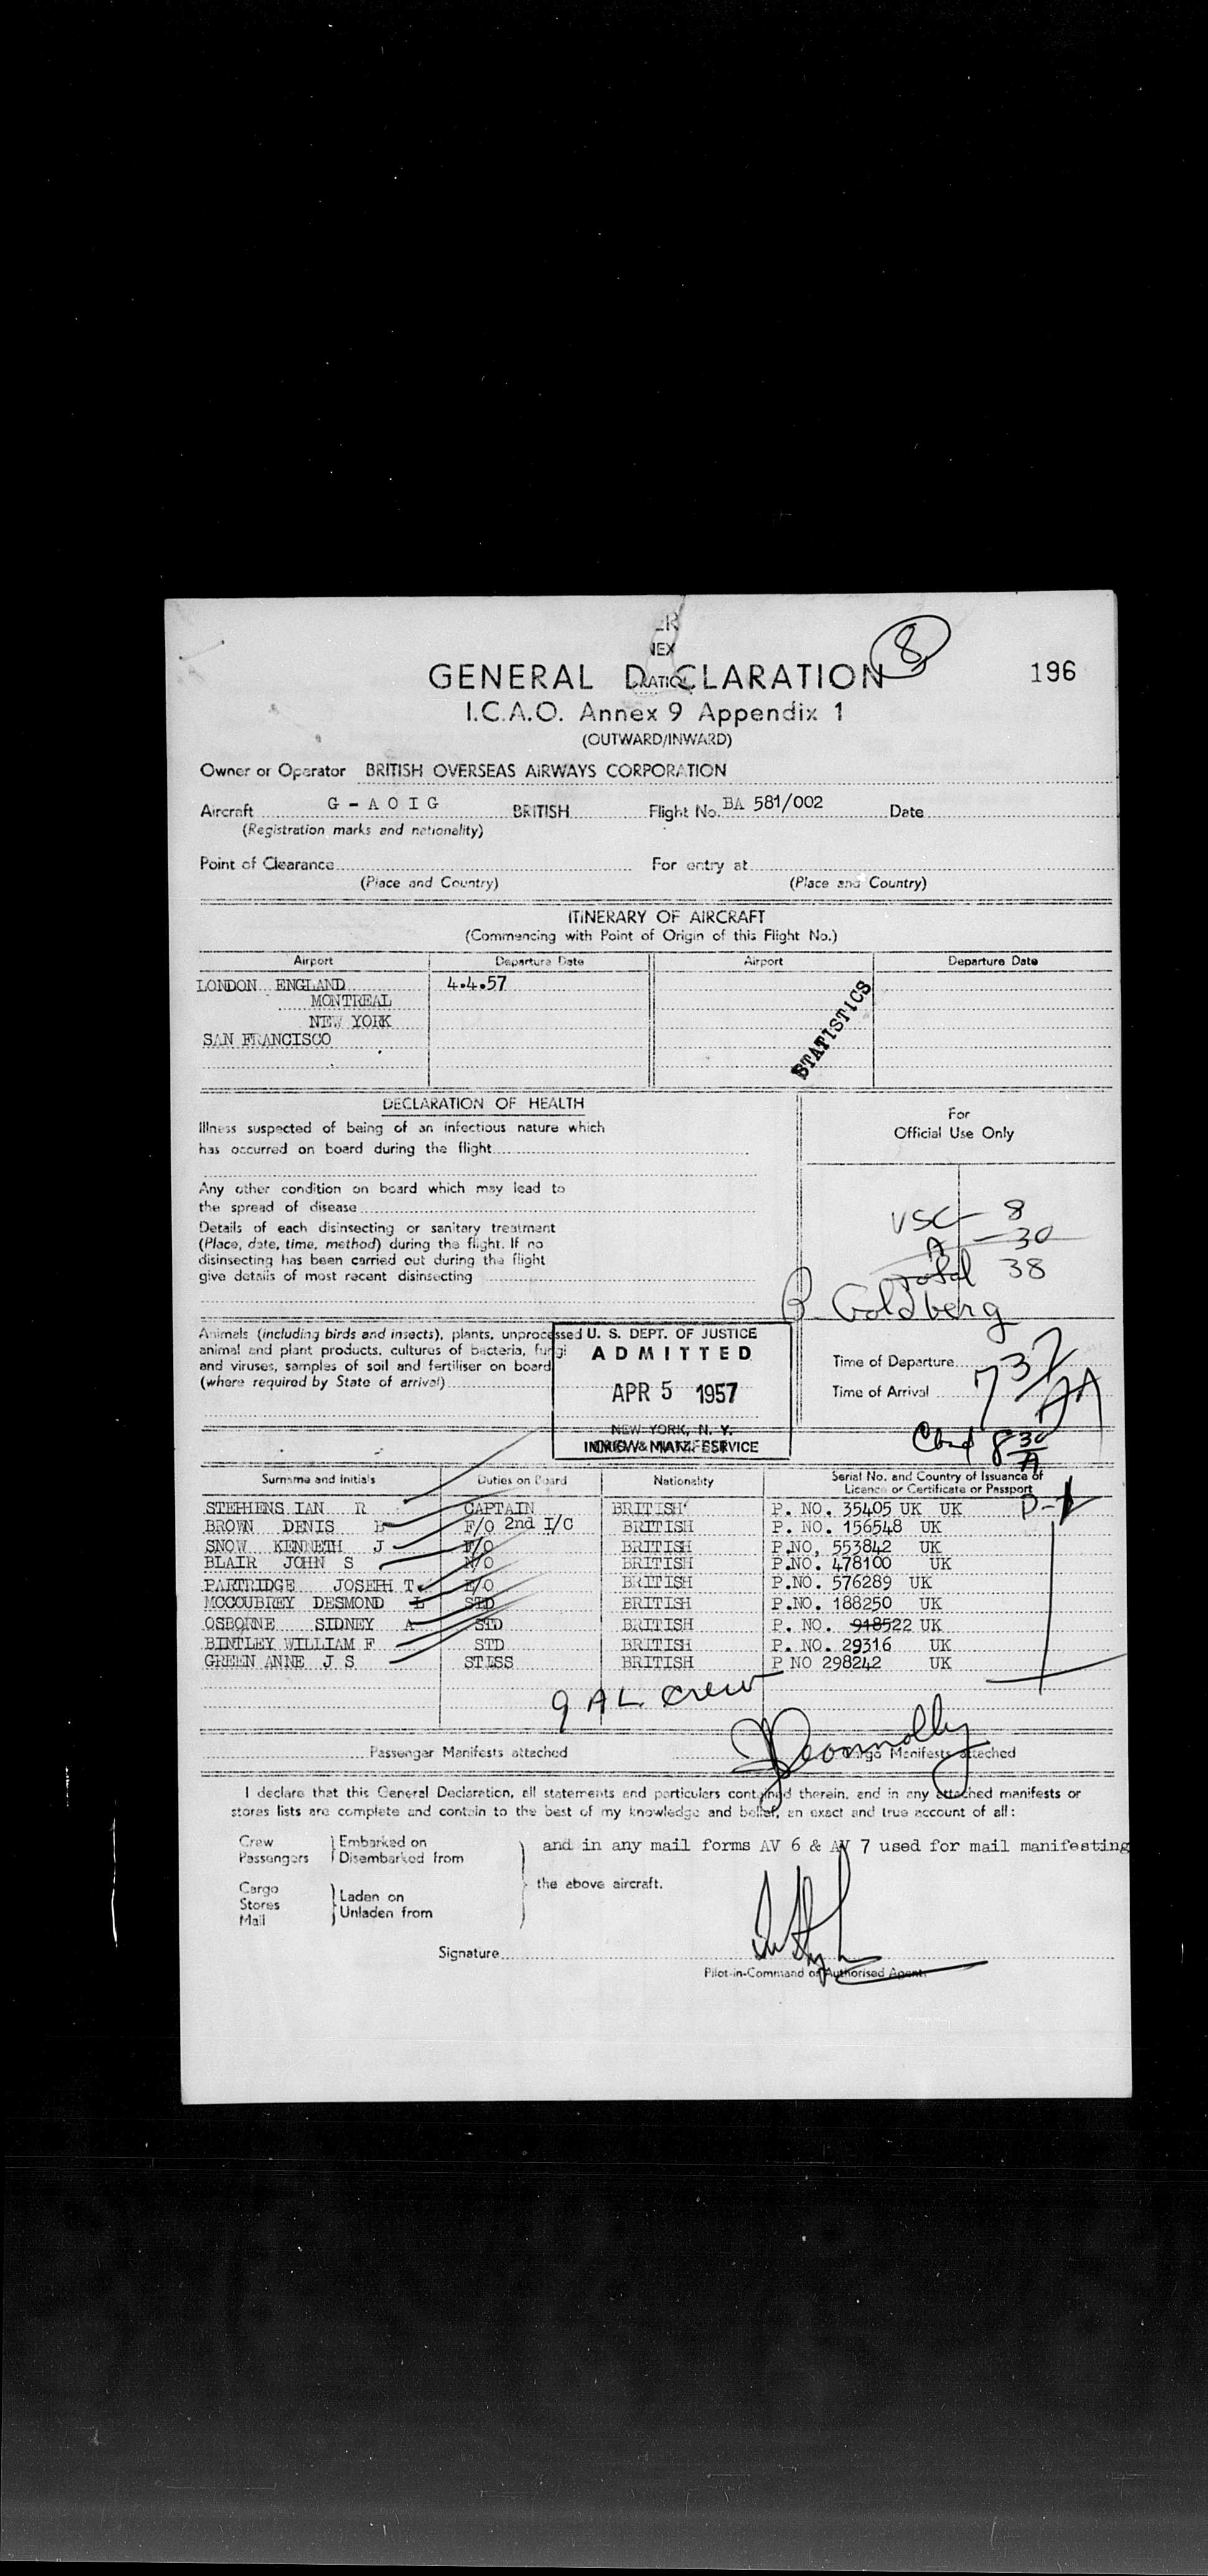 8
196
GENERAL DECLARATION
I.C.A.O. Annex 9 Appendix 1
(OUTWARD/INWARD)
Owner or Operator BRITISH OVERSEAS AIRWAYS CORPORATION
Aircraft G - A O I G BRITISH Flight No. BA 581/002 Date
(Registration marks and nationality)
Point of Clearance For entry at
(Place and Country) (Place and Country)
ITINERARY OF AIRCRAFT
(Commencing with Point of Origin of this Flight No.)
Airport Departure Date Airport Departure Date
LONDON ENGLAND 4.4.57
MONTREAL
NEW YORK
SAN FRANCISCO
STATISTICS
DECLARATION OF HEALTH
Illness suspected of being of an infectious nature which
has occurred on board during the flight
Any other condition on board which may lead to
the spread of disease
Details of each disinsecting or sanitary treatment
(Place, date, time, method) during the flight. If no
disinsecting has been carried out during the flight
give details of most recent disinsecting
For
Official Use Only
USC - 8
A - 30
Total 38
B Goldberg
Animals (including birds and insects), plants, unprocessed
animal and plant products, cultures of bacteria, fungi
and viruses, samples of soil and fertiliser on board
(where required by State of arrival)
U. S. DEPT. OF JUSTICE
ADMITTED
APR 5 1957
NEW YORK, N. Y.
Time of Departure
Time of Arrival 7 32
8 30 A
Surname and Initials Duties on Board Nationality Serial No. and Country of Issuance of
Licence or Certificate or Passport
STEPHENS IAN R CAPTAIN BRITISH P. NO. 35405 UK UK
BROWN DENIS F/O 2nd I/C BRITISH P. NO. 156548 UK
SNOW KENNETH J F/O BRITISH P.NO, 553842 UK
BLAIR JOHN S N/O BRITISH P.NO. 478100 UK
PARTRIDGE JOSEPH T. E/O BRITISH P.NO. 576289 UK
MCCOUBREY DESMOND STD BRITISH P.NO. 188250 UK
OSBORNE SIDNEY A STD BRITISH P. NO. 918522 UK
BINTLEY WILLIAM F STD BRITISH P. NO. 29316 UK
GREEN ANNE J S STESS BRITISH P NO 298242 UK
9 AL crew
J Connolly
Passenger Manifests attached Cargo Manifests attached
I declare that this General Declaration, all statements and particulars contained therein, and in any attached manifests or
stores lists are complete and contain to the best of my knowledge and belief, an exact and true account of all:
Crew Embarked on and in any mail forms AV 6 & AV 7 used for mail manifesting
Passengers Disembarked from
Cargo Laden on the above aircraft.
Stores Unladen from
Mail
Signature
Pilot-in-Command or Authorised Agent.